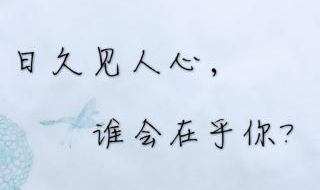 日久见人心，
谁会在乎你？